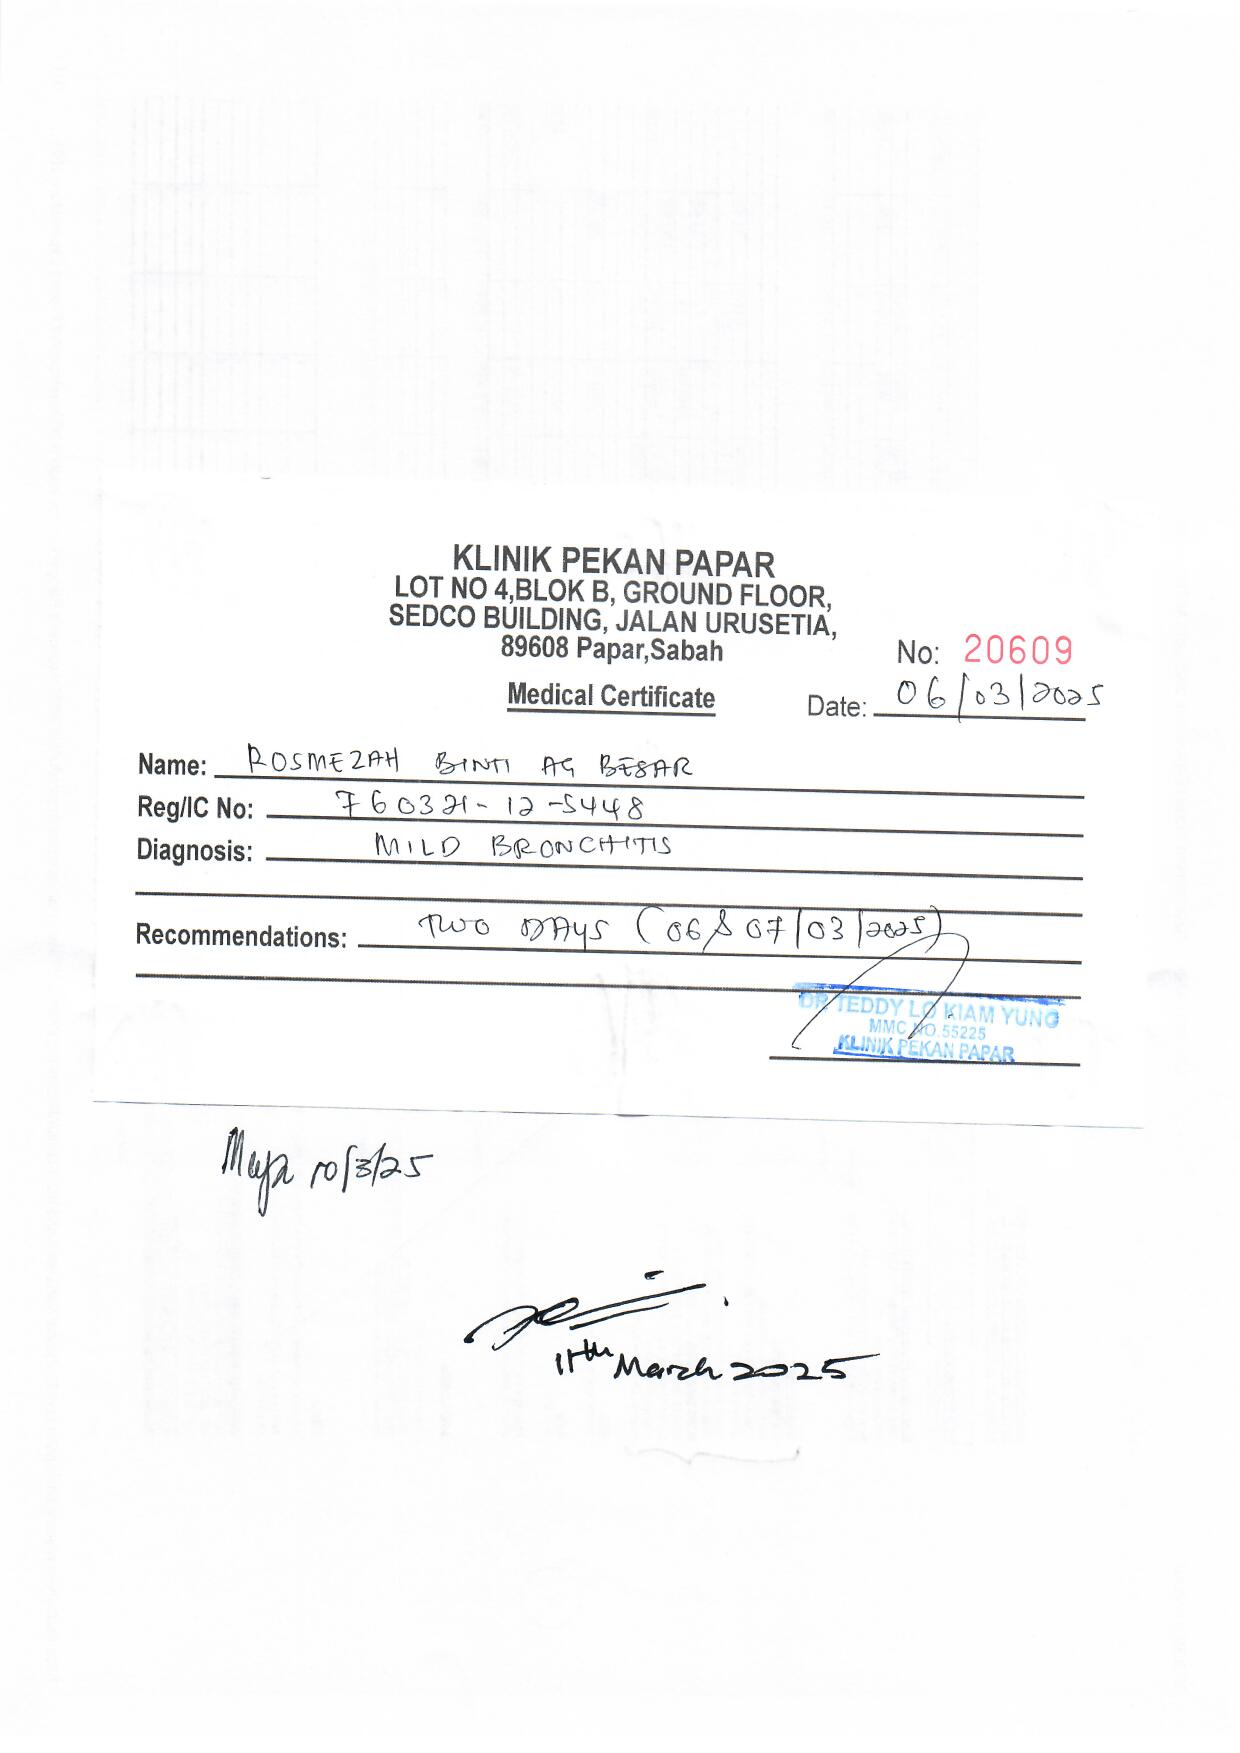 KLINIK PEKAN PAPAR
LOT NO 4,BLOK B, GROUND FLOOR,
SEDCO BUILDING, JALAN URUSETIA,
89608 Papar,Sabah
No: 20609
Medical Certificate
Date: 06/03/2025
Name: ROSMEZAH BINTI AG BESAR
Reg/IC No: 760321-12-5448
Diagnosis: MILD BRONCHITIS
Recommendations: TWO DAYS (06 & 07/03/2025)
DR TEDDY LO KIAM YUNG
MMC NO.55225
KLINIK PEKAN PAPAR
10/3/25
11th March 2025